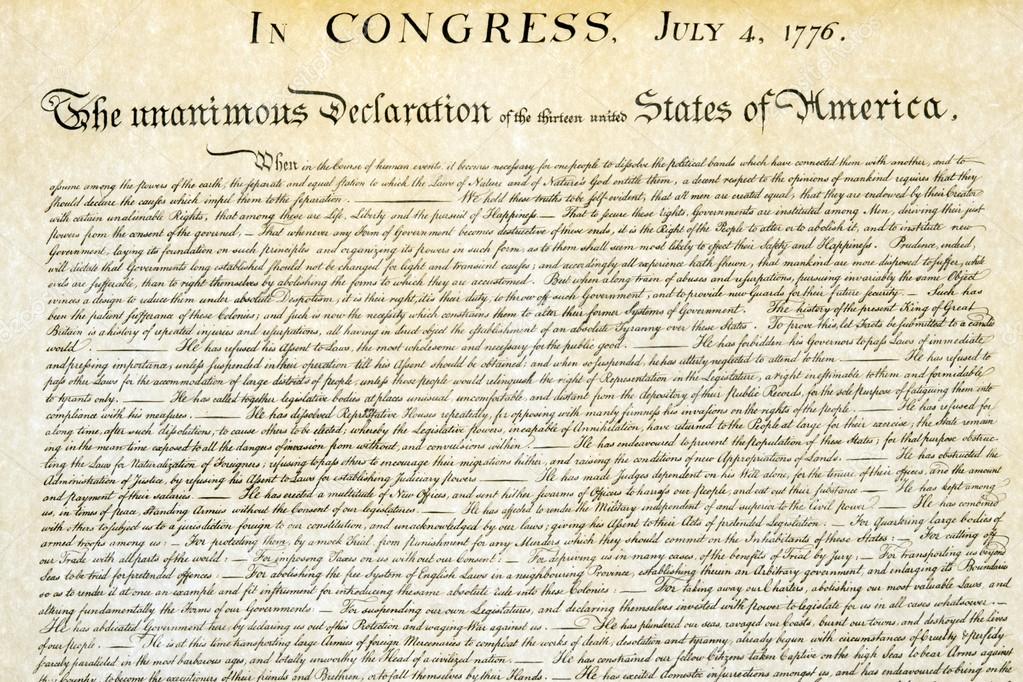 In CONGRESS, July 4, 1776.
The unanimous Declaration of the thirteen united States of America,
When in the Course of human events, it becomes necessary for one people to dissolve the political bands which have connected them with another, and to
assume among the powers of the earth, the separate and equal station to which the Laws of Nature and of Nature's God entitle them, a decent respect to the opinions of mankind requires that they
should declare the causes which impel them to the separation. — We hold these truths to be self-evident, that all men are created equal, that they are endowed by their Creator
with certain unalienable Rights, that among these are Life, Liberty and the pursuit of Happiness. — That to secure these rights, Governments are instituted among Men, deriving their just
powers from the consent of the governed, — That whenever any Form of Government becomes destructive of these ends, it is the Right of the People to alter or to abolish it, and to institute new
Government, laying its foundation on such principles and organizing its powers in such form, as to them shall seem most likely to effect their Safety and Happiness. Prudence, indeed,
will dictate that Governments long established should not be changed for light and transient causes; and accordingly all experience hath shewn, that mankind are more disposed to suffer, while
evils are sufferable, than to right themselves by abolishing the forms to which they are accustomed. But when a long train of abuses and usurpations, pursuing invariably the same Object
evinces a design to reduce them under absolute Despotism, it is their right, it is their duty, to throw off such Government, and to provide new Guards for their future security. — Such has
been the patient sufferance of these Colonies; and such is now the necessity which constrains them to alter their former Systems of Government. The history of the present King of Great
Britain is a history of repeated injuries and usurpations, all having in direct object the establishment of an absolute Tyranny over these States. To prove this, let Facts be submitted to a candid
world. — He has refused his Assent to Laws, the most wholesome and necessary for the public good. — He has forbidden his Governors to pass Laws of immediate
and pressing importance, unless suspended in their operation till his Assent should be obtained; and when so suspended, he has utterly neglected to attend to them. — He has refused to
pass other Laws for the accommodation of large districts of people, unless those people would relinquish the right of Representation in the Legislature, a right inestimable to them and formidable
to tyrants only. — He has called together legislative bodies at places unusual, uncomfortable, and distant from the depository of their Public Records, for the sole purpose of fatiguing them into
compliance with his measures. — He has dissolved Representative Houses repeatedly, for opposing with manly firmness his invasions on the rights of the people. — He has refused for
a long time, after such dissolutions, to cause others to be elected; whereby the Legislative powers, incapable of Annihilation, have returned to the People at large for their exercise; the State remain
ing in the mean time exposed to all the dangers of invasion from without, and convulsions within. — He has endeavoured to prevent the population of these States; for that purpose obstruc
ting the Laws for Naturalization of Foreigners; refusing to pass others to encourage their migrations hither, and raising the conditions of new Appropriations of Lands. — He has obstructed the
Administration of Justice, by refusing his Assent to Laws for establishing Judiciary powers. — He has made Judges dependent on his Will alone, for the tenure of their offices, and the amount
and payment of their salaries. — He has erected a multitude of New Offices, and sent hither swarms of Officers to harrass our people, and eat out their substance. — He has kept among
us, in times of peace, Standing Armies without the Consent of our legislatures. — He has affected to render the Military independent of and superior to the Civil power. — He has combined
with others to subject us to a jurisdiction foreign to our constitution, and unacknowledged by our laws; giving his Assent to their Acts of pretended Legislation: — For Quartering large bodies of
armed troops among us: — For protecting them, by a mock Trial, from punishment for any Murders which they should commit on the Inhabitants of these States: — For cutting off
our Trade with all parts of the world: — For imposing Taxes on us without our Consent: — For depriving us in many cases, of the benefits of Trial by Jury: — For transporting us beyond
Seas to be tried for pretended offences: — For abolishing the free System of English Laws in a neighbouring Province, establishing therein an Arbitrary government, and enlarging its Boundaries
so as to render it at once an example and fit instrument for introducing the same absolute rule into these Colonies: — For taking away our Charters, abolishing our most valuable Laws, and
altering fundamentally the Forms of our Governments: — For suspending our own Legislatures, and declaring themselves invested with power to legislate for us in all cases whatsoever. —
He has abdicated Government here, by declaring us out of his Protection and waging War against us. — He has plundered our seas, ravaged our Coasts, burnt our towns, and destroyed the lives
of our people. — He is at this time transporting large Armies of foreign Mercenaries to compleat the works of death, desolation and tyranny, already begun with circumstances of Cruelty & perfidy
scarcely paralleled in the most barbarous ages, and totally unworthy the Head of a civilized nation. — He has constrained our fellow Citizens taken Captive on the high Seas to bear Arms against
their Country, to become the executioners of their friends and Brethren, or to fall themselves by their Hands. — He has excited domestic insurrections amongst us, and has endeavoured to bring on the